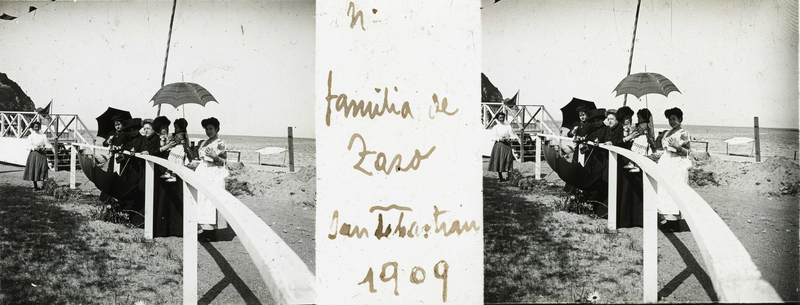 Nº
familia de
Zaro
San Sebastian
1909